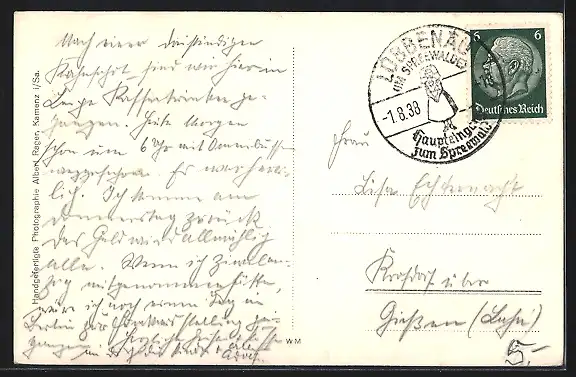 Nach einer dreistündigen
Kahnfahrt sind wir hier in
Kaffeetrinken ge-
gangen. Heute Morgen
schon um 6 Uhr mit Omnibussen
Es war herr-
lich. Ich komme am
Donnerstag zurück
das Geld wird allmählig
alle. Wenn ich
mitgenommen hätte,
wäre ich noch einen Tag in
Berlin zur
gangen. Herzliche Grüsse
Handgefertigte Photographie Albert Rager, Kamenz i/Sa.
WM
LÜBBENAU
(IM SPREEWALDE)
-1.8.38
Haupteingang
zum Spreewald
6 6
Deutsches Reich
Frau
Lisa Echternacht
Krofdorf über
Gießen (Lahn)
5,-